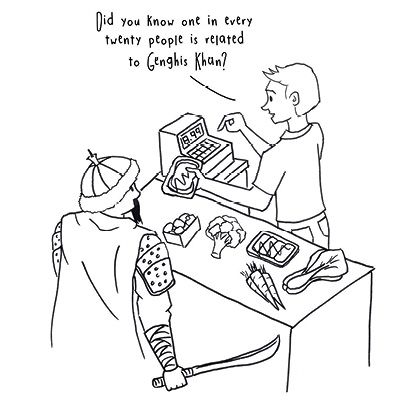 Did you know one in every
twenty people is related
to Genghis Khan?
18.99